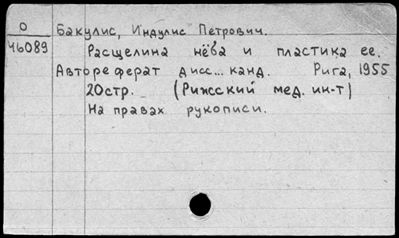 О Бакулис, Индулис Петрович.
46089 Расщелина нёба и пластика ее.
Автореферат дисс... канд. Рига, 1955
20стр. (Рижский мед. ин-т)
На правах рукописи.